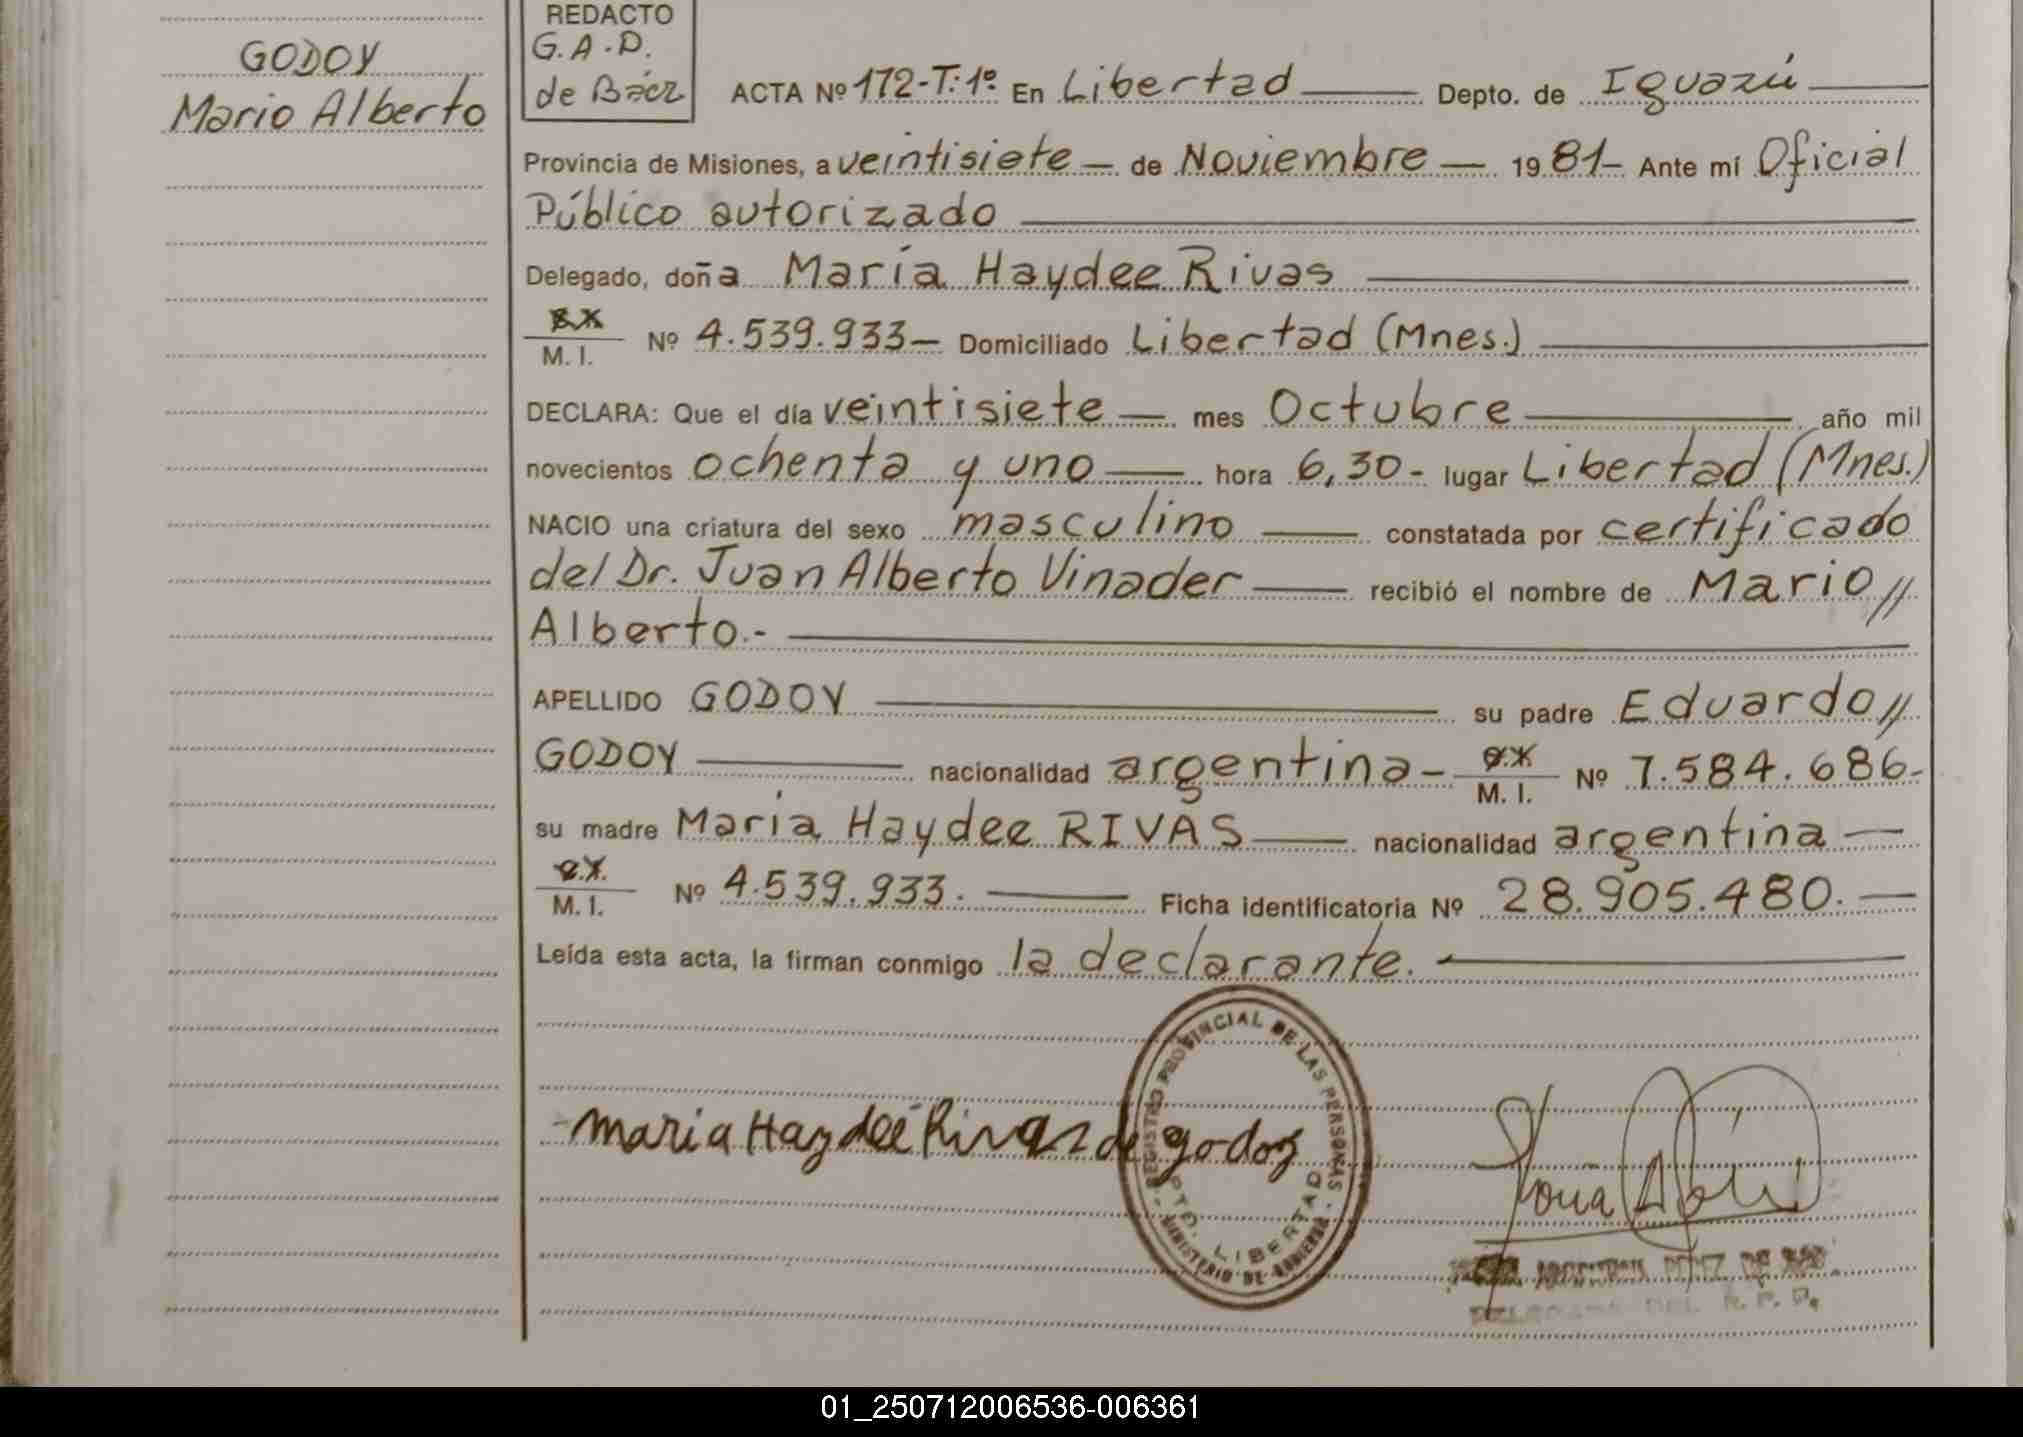 GODOY
Mario Alberto
REDACTO
G.A.P.
de Báez
ACTA Nº 172-T:1º En Libertad Depto. de Iguazú
Provincia de Misiones, a veintisiete de Noviembre 1981 Ante mí Oficial
Público autorizado
Delegado, doña María Haydee Rivas
M. I. Nº 4.539.933 Domiciliado Libertad (Mnes.)
DECLARA: Que el día veintisiete mes Octubre año mil
novecientos ochenta y uno hora 6,30- lugar Libertad (Mnes.)
NACIO una criatura del sexo masculino constatada por certificado
del Dr. Juan Alberto Vinader recibió el nombre de Mario//
Alberto.-
APELLIDO GODOY su padre Eduardo//
GODOY nacionalidad argentina- M. I. Nº 7.584.686-
su madre María Haydee RIVAS nacionalidad argentina
M. I. Nº 4.539.933. Ficha identificatoria Nº 28.905.480.
Leída esta acta, la firman conmigo la declarante.
maria Haydeé Rivas de godoy
REGISTRO PROVINCIAL DE LAS PERSONAS
DPTO. LIBERTAD
MINISTERIO DE GOBIERNO
DELEGADA DEL R. P. P.
01_250712006536-006361